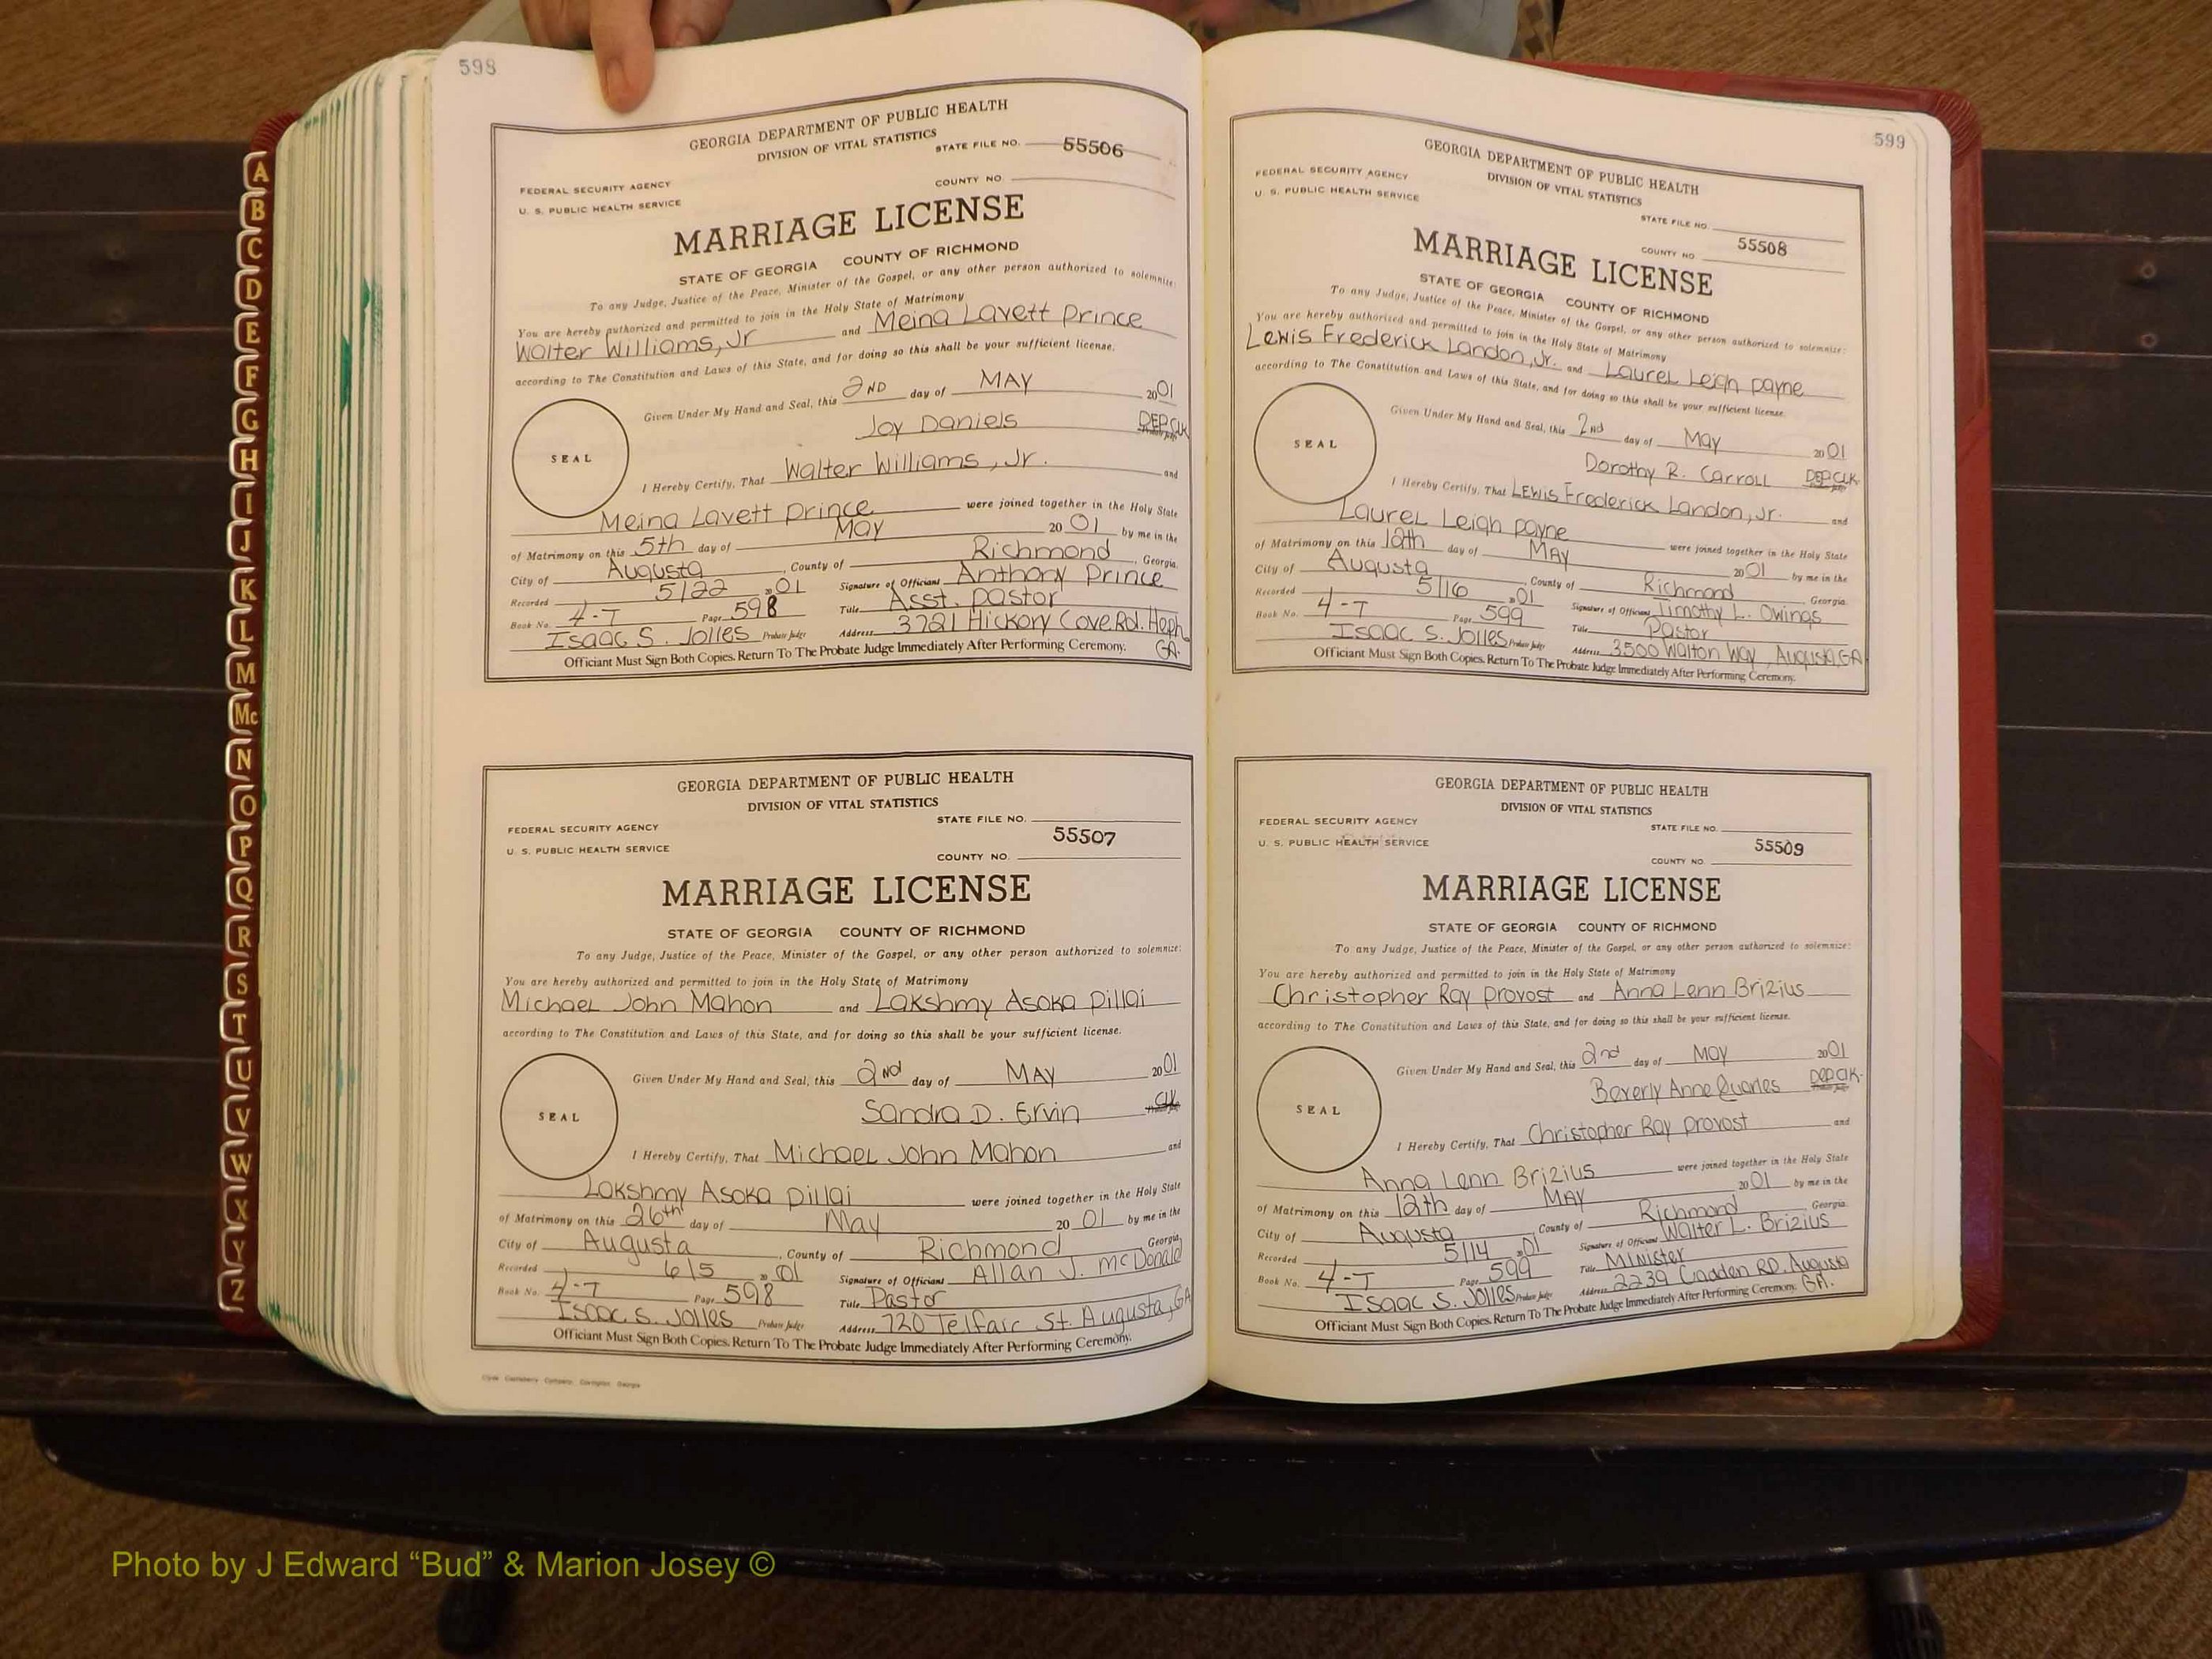 A
B
C
D
E
F
G
H
I
J
K
L
M
Mc
N
O
P
Q
R
S
T
U
V
W
X
Y
Z
598
GEORGIA DEPARTMENT OF PUBLIC HEALTH
DIVISION OF VITAL STATISTICS
STATE FILE NO. 55506
FEDERAL SECURITY AGENCY
COUNTY NO.
U. S. PUBLIC HEALTH SERVICE
MARRIAGE LICENSE
STATE OF GEORGIA COUNTY OF RICHMOND
To any Judge, Justice of the Peace, Minister of the Gospel, or any other person authorized to solemnize:
You are hereby authorized and permitted to join in the Holy State of Matrimony
Walter Williams, Jr and Meina Lavett Prince
according to The Constitution and Laws of this State, and for doing so this shall be your sufficient license.
Given Under My Hand and Seal, this 2ND day of MAY 2001
Joy Daniels DEP CLK
SEAL
I Hereby Certify, That Walter Williams, Jr. and
Meina Lavett Prince were joined together in the Holy State
of Matrimony on this 5th day of May 2001 by me in the
City of Augusta, County of Richmond, Georgia.
Recorded 5/22 2001 Signature of Officiant Anthony Prince
Book No. 4-T Page 598 Title Asst. Pastor
Isaac S. Jolles Probate Judge Address 3721 Hickory Cove Rd. Heph. GA.
Officiant Must Sign Both Copies. Return To The Probate Judge Immediately After Performing Ceremony.
GEORGIA DEPARTMENT OF PUBLIC HEALTH
DIVISION OF VITAL STATISTICS
STATE FILE NO.
FEDERAL SECURITY AGENCY
55507
U. S. PUBLIC HEALTH SERVICE
COUNTY NO.
MARRIAGE LICENSE
STATE OF GEORGIA COUNTY OF RICHMOND
To any Judge, Justice of the Peace, Minister of the Gospel, or any other person authorized to solemnize:
You are hereby authorized and permitted to join in the Holy State of Matrimony
Michael John Mahon and Lakshmy Asoka Pillai
according to The Constitution and Laws of this State, and for doing so this shall be your sufficient license.
Given Under My Hand and Seal, this 2nd day of MAY 2001
Sandra D. Ervin Clk
SEAL
I Hereby Certify, That Michael John Mahon and
Lakshmy Asoka Pillai were joined together in the Holy State
of Matrimony on this 26th day of May 2001 by me in the
City of Augusta, County of Richmond Georgia,
Recorded 6/5 2001 Signature of Officiant Allan J. McDonald
Book No. 4-T Page 598 Title Pastor
Isaac S. Jolles Probate Judge Address 720 Telfair St. Augusta, GA
Officiant Must Sign Both Copies. Return To The Probate Judge Immediately After Performing Ceremony.
599
GEORGIA DEPARTMENT OF PUBLIC HEALTH
FEDERAL SECURITY AGENCY
DIVISION OF VITAL STATISTICS
U. S. PUBLIC HEALTH SERVICE
STATE FILE NO.
55508
COUNTY NO
MARRIAGE LICENSE
STATE OF GEORGIA COUNTY OF RICHMOND
To any Judge, Justice of the Peace, Minister of the Gospel, or any other person authorized to solemnize:
You are hereby authorized and permitted to join in the Holy State of Matrimony
Lewis Frederick Landon, Jr. and Laurel Leigh Payne
according to The Constitution and Laws of this State, and for doing so this shall be your sufficient license.
Given Under My Hand and Seal, this 2nd day of May 2001
Dorothy R. Carroll DEP CLK
SEAL
I Hereby Certify, That Lewis Frederick Landon, Jr. and
Laurel Leigh Payne were joined together in the Holy State
of Matrimony on this 12th day of MAY 2001 by me in the
City of Augusta, County of Richmond, Georgia.
Recorded 5/16 2001 Signature of Officiant Timothy L. Owings
Book No. 4-T Page 599 Title Pastor
Isaac S. Jolles Probate Judge Address 3500 Walton Way, Augusta, GA
Officiant Must Sign Both Copies. Return To The Probate Judge Immediately After Performing Ceremony.
GEORGIA DEPARTMENT OF PUBLIC HEALTH
DIVISION OF VITAL STATISTICS
FEDERAL SECURITY AGENCY
STATE FILE NO.
U. S. PUBLIC HEALTH SERVICE
55509
COUNTY NO.
MARRIAGE LICENSE
STATE OF GEORGIA COUNTY OF RICHMOND
To any Judge, Justice of the Peace, Minister of the Gospel, or any other person authorized to solemnize:
You are hereby authorized and permitted to join in the Holy State of Matrimony
Christopher Ray Provost and Anna Lenn Brizius
according to The Constitution and Laws of this State, and for doing so this shall be your sufficient license.
Given Under My Hand and Seal, this 2nd day of May 2001
Beverly Anne Quarles DEP Clk.
SEAL
I Hereby Certify, That Christopher Ray Provost and
Anna Lenn Brizius were joined together in the Holy State
of Matrimony on this 12th day of MAY 2001 by me in the
City of Augusta County of Richmond Georgia.
Recorded 5/14 2001 Signature of Officiant Walter L. Brizius
Book No. 4-T Page 599 Title Minister
Isaac S. Jolles Probate Judge Address 2239 Cadden RD. Augusta GA.
Officiant Must Sign Both Copies. Return To The Probate Judge Immediately After Performing Ceremony.
Photo by J Edward “Bud” & Marion Josey ©